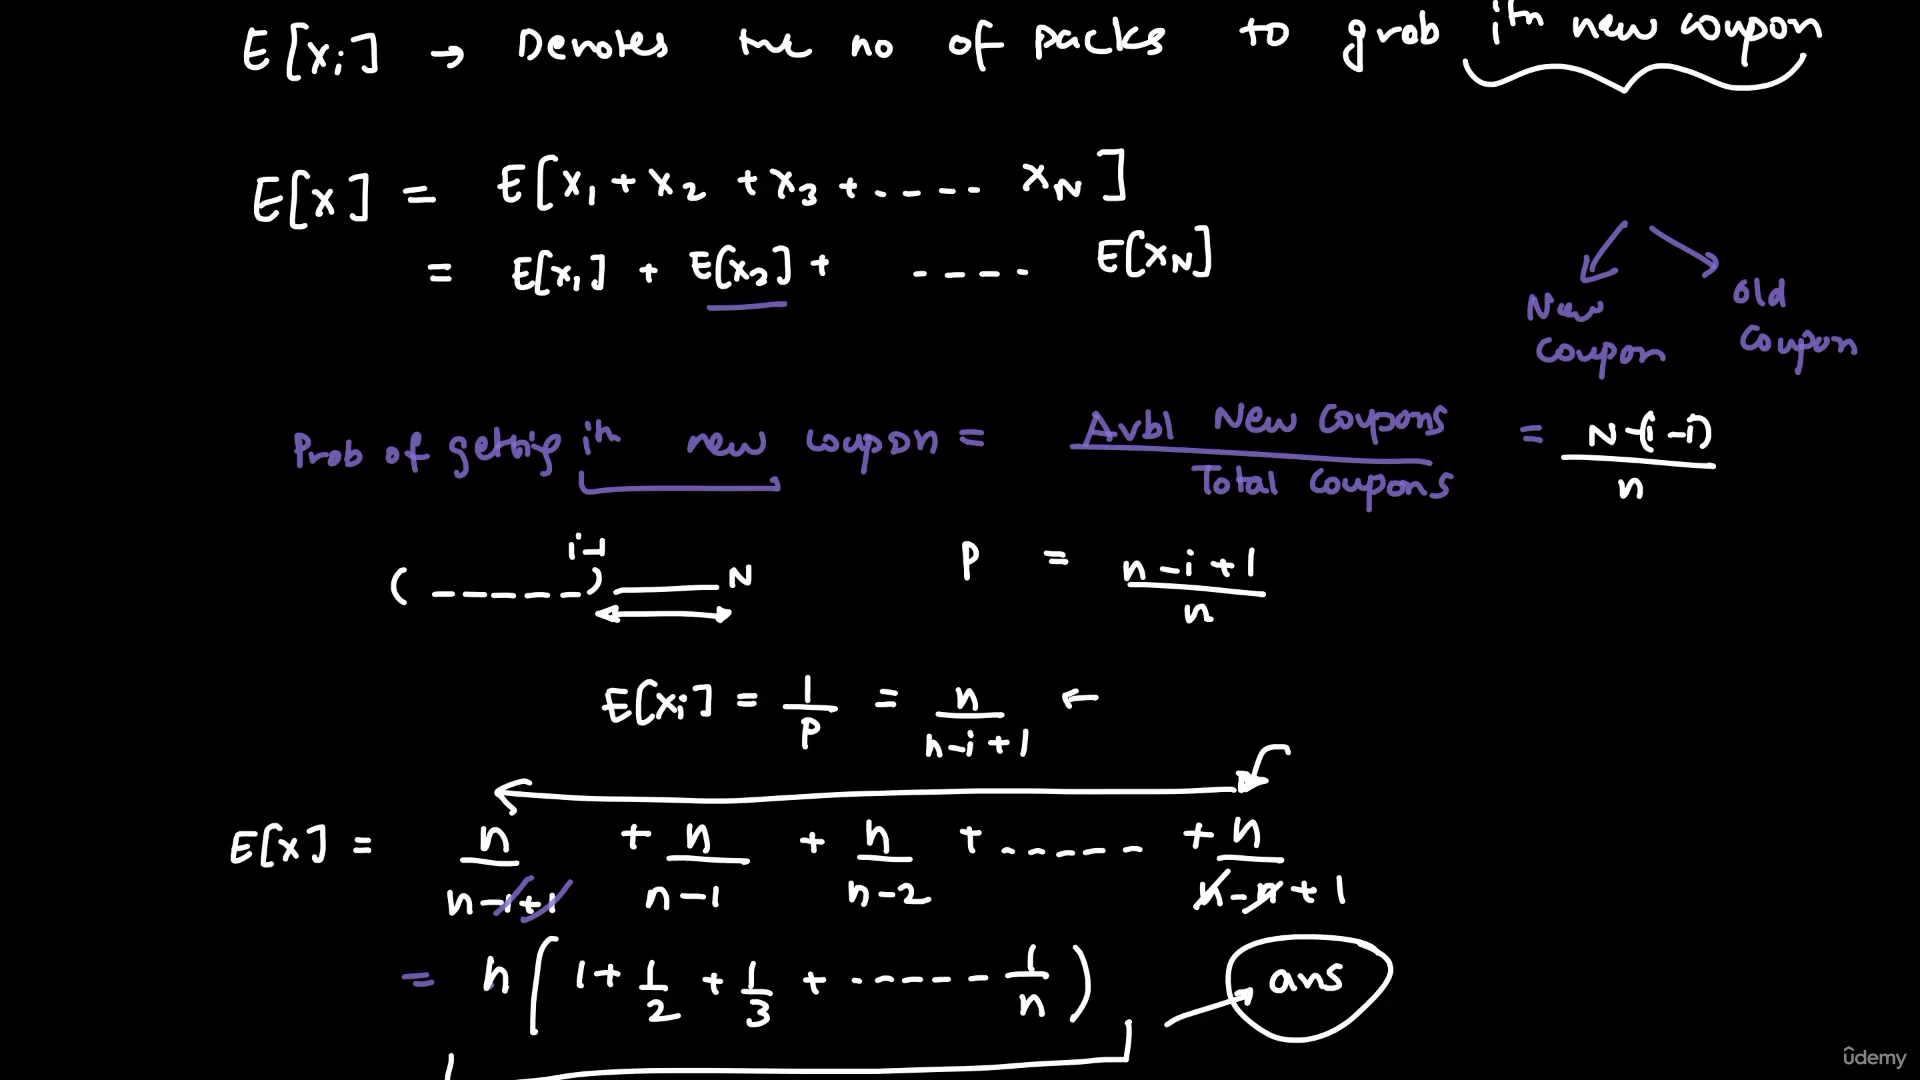 E[xi] → Denotes the no of packs to grab ith new coupon
E[x] = E[x1 + x2 + x3 + ..... xN]
= E[x1] + E[x2] + ---- E[xN]
New coupon
Old coupon
Prob of getting ith new coupon = Avbl New Coupons / Total Coupons = N-(i-i) / n
i-1
( ------ ) N
P = n-i+1 / n
E[xi] = 1/P = n / n-i+1 ←
E[x] = n / n-1+1 + n / n-1 + n / n-2 + ------ + n / n-n+1
= n ( 1 + 1/2 + 1/3 + ------ 1/n ) ans
ûdemy